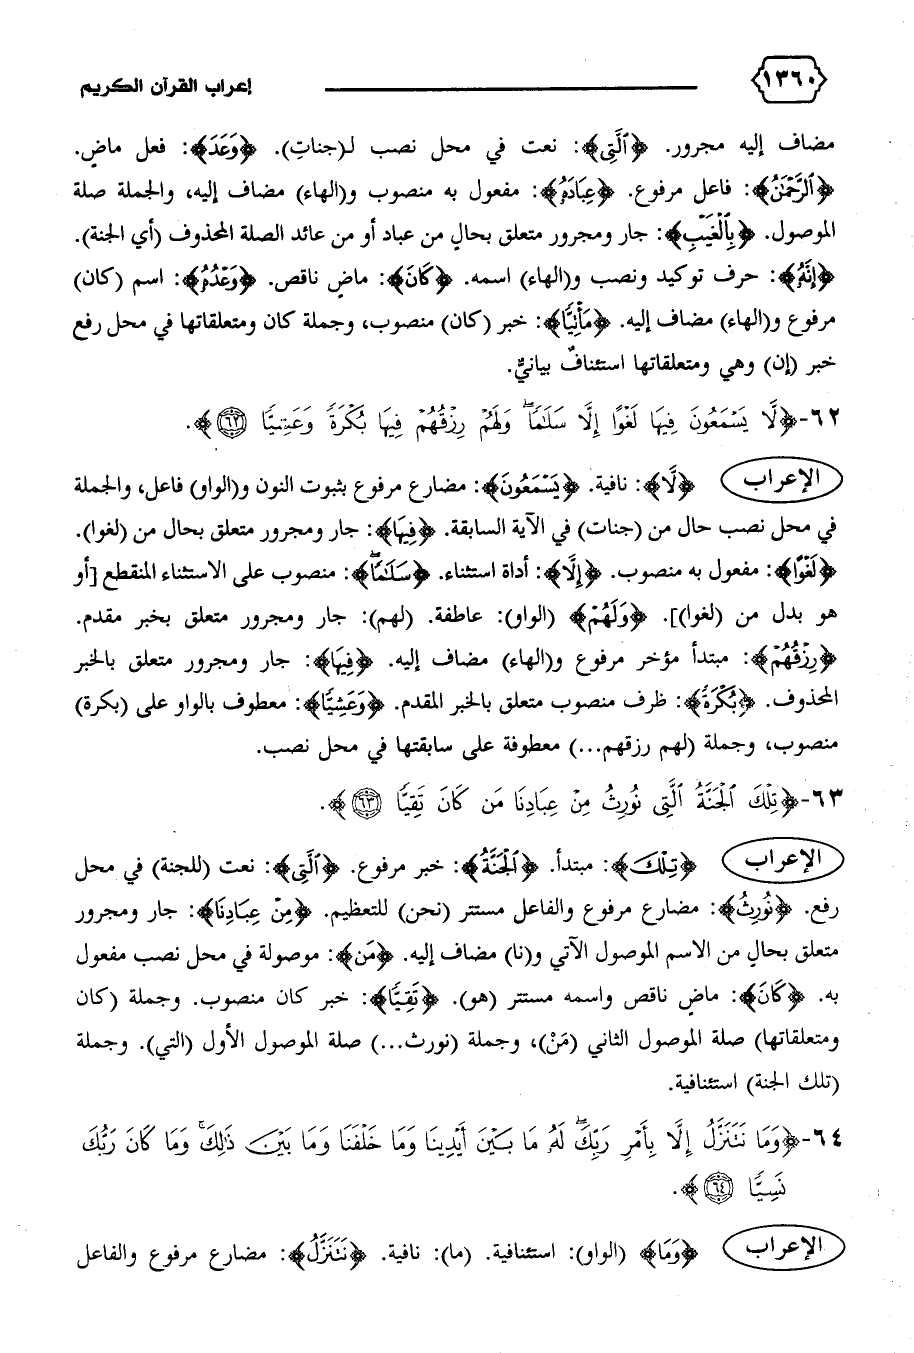 ١٣٦٠ إعراب القرآن الكريم
مضاف إليه مجرور. ﴿ٱلَّتِى﴾: نعت في محل نصب لـ(جناتِ). ﴿وَعَدَ﴾: فعل ماضٍ.
﴿ٱلرَّحْمَٰنُ﴾: فاعل مرفوع. ﴿عِبَادَهُۥ﴾: مفعول به منصوب و(الهاء) مضاف إليه، والجملة صلة
الموصول. ﴿بِٱلْغَيْبِ﴾: جار ومجرور متعلق بحالٍ من عباد أو من عائد الصلة المحذوف (أي الجنة).
﴿إِنَّهُۥ﴾: حرف توكيد ونصب و(الهاء) اسمه. ﴿كَانَ﴾: ماضٍ ناقص. ﴿وَعْدُهُۥ﴾: اسم (كان)
مرفوع و(الهاء) مضاف إليه. ﴿مَأْتِيًّا﴾: خبر (كان) منصوب، وجملة كان ومتعلقاتها في محل رفع
خبر (إن) وهي ومتعلقاتها استئنافٌ بيانيٌّ.
٦٢-﴿لَّا يَسْمَعُونَ فِيهَا لَغْوًا إِلَّا سَلَٰمًا ۖ وَلَهُمْ رِزْقُهُمْ فِيهَا بُكْرَةً وَعَشِيًّا ٦٢﴾.
الإعراب ﴿لَّا﴾: نافية. ﴿يَسْمَعُونَ﴾: مضارع مرفوع بثبوت النون و(الواو) فاعل، والجملة
في محل نصب حال من (جنات) في الآية السابقة. ﴿فِيهَا﴾: جار ومجرور متعلق بحال من (لغوا).
﴿لَغْوًا﴾: مفعول به منصوب. ﴿إِلَّا﴾: أداة استثناء. ﴿سَلَٰمًا ۖ﴾: منصوب على الاستثناء المنقطع [أو
هو بدل من (لغوا)]. ﴿وَلَهُمْ﴾ (الواو): عاطفة. (لهم): جار ومجرور متعلق بخبر مقدم.
﴿رِزْقُهُمْ﴾: مبتدأ مؤخر مرفوع و(الهاء) مضاف إليه. ﴿فِيهَا﴾: جار ومجرور متعلق بالخبر
المحذوف. ﴿بُكْرَةً﴾: ظرف منصوب متعلق بالخبر المقدم. ﴿وَعَشِيًّا﴾: معطوف بالواو على (بكرة)
منصوب، وجملة (لهم رزقهم...) معطوفة على سابقتها في محل نصب.
٦٣-﴿تِلْكَ ٱلْجَنَّةُ ٱلَّتِى نُورِثُ مِنْ عِبَادِنَا مَن كَانَ تَقِيًّا ٦٣﴾.
الإعراب ﴿تِلْكَ﴾: مبتدأ. ﴿ٱلْجَنَّةُ﴾: خبر مرفوع. ﴿ٱلَّتِى﴾: نعت (للجنة) في محل
رفع. ﴿نُورِثُ﴾: مضارع مرفوع والفاعل مستتر (نحن) للتعظيم. ﴿مِنْ عِبَادِنَا﴾: جار ومجرور
متعلق بحالٍ من الاسم الموصول الآتي و(نا) مضاف إليه. ﴿مَن﴾: موصولة في محل نصب مفعول
به. ﴿كَانَ﴾: ماضٍ ناقص واسمه مستتر (هو). ﴿تَقِيًّا﴾: خبر كان منصوب. وجملة (كان
ومتعلقاتها) صلة الموصول الثاني (مَنْ)، وجملة (نورث...) صلة الموصول الأول (التي). وجملة
(تلك الجنة) استئنافية.
٦٤-﴿وَمَا نَتَنَزَّلُ إِلَّا بِأَمْرِ رَبِّكَ ۖ لَهُۥ مَا بَيْنَ أَيْدِينَا وَمَا خَلْفَنَا وَمَا بَيْنَ ذَٰلِكَ ۚ وَمَا كَانَ رَبُّكَ
نَسِيًّا ٦٤﴾.
الإعراب ﴿وَمَا﴾ (الواو): استئنافية. (ما): نافية. ﴿نَتَنَزَّلُ﴾: مضارع مرفوع والفاعل